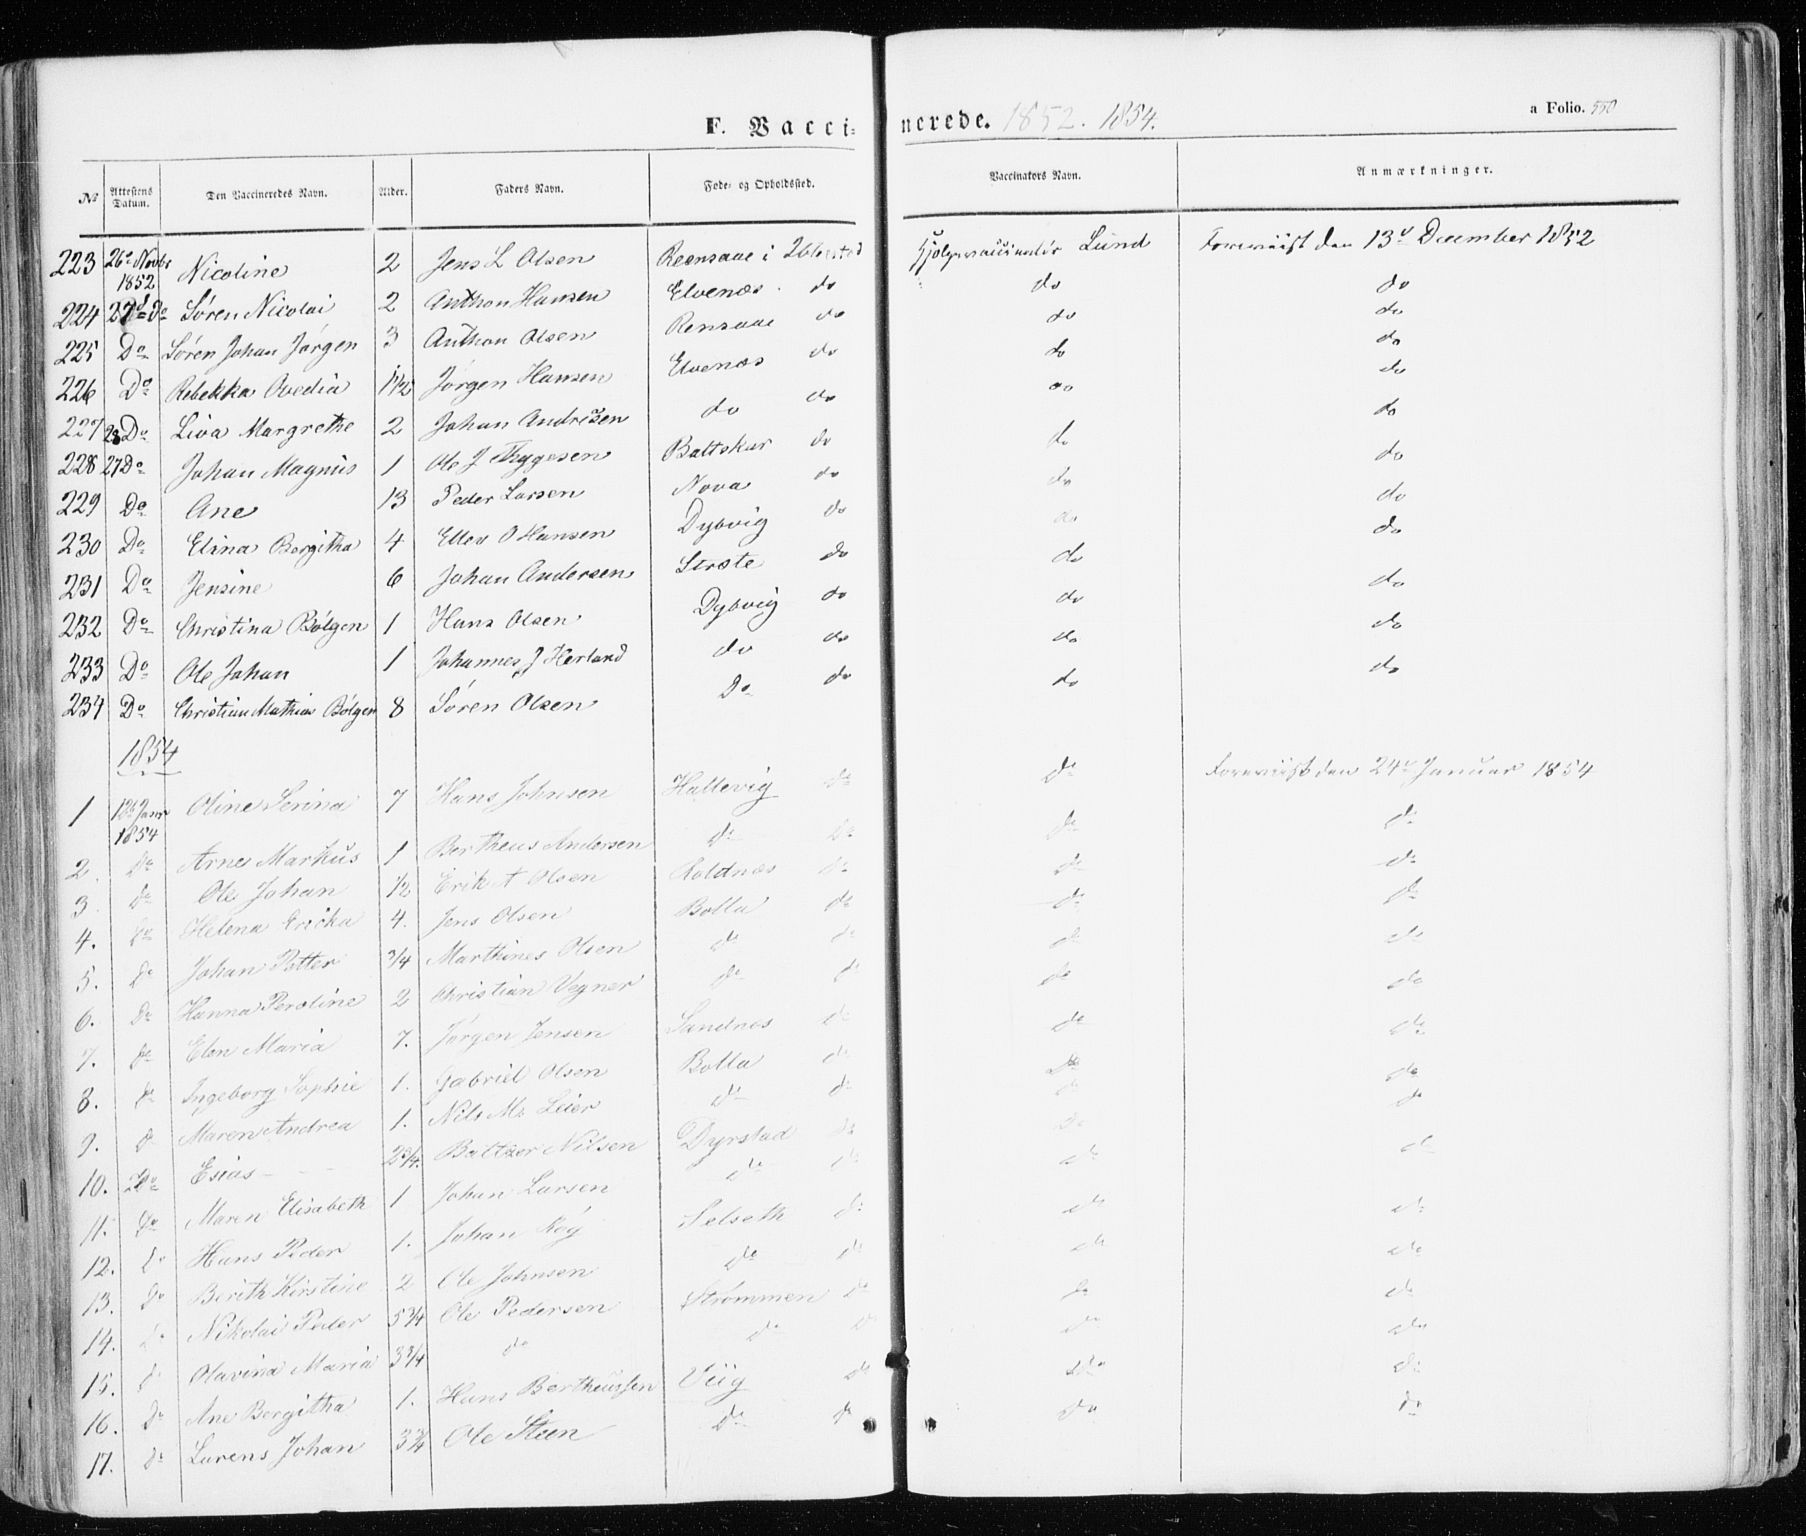 F. Vaccinerede. 1852. 1854.
a Folio. 550
No Attestens Datum. Den Vaccineredes Navn. Alder. Faders Navn. Føde- og Opholdssted. Vaccinators Navn. Anmærkninger.
223 26de Novbr 1852 Nicoline 2 Jens L Olsen Reensaae i Lund Foreviist den 13de December 1852
224 27d Do Søren Nicolai 2 Anthon Hansen Elvenæs do do do
225 Do Søren Johan Jørgen 3 Anthon Olsen Rensaae do do do
226 Do Rebekka Ovedia 1 1/2 Jørgen Hansen Elvenæs do do do
227 28 Do Liva Margrethe 2 Johan Andresen do do do do
228 27 Do Johan Magnus 1 Ole J Thygesen Baltskar do do do
229 Do Ane 13 Peder Larsen Nova do do do
230 Do Elina Bergitha 4 Ellev O Hansen Dybvig do do do
231 Do Jensine 6 Johan Andersen Strøte do do do
232 Do Christina Bølgen 1 Hans Olsen Dybvig do do do
233 Do Ole Johan 1 Johannes J Herland do do do do
234 Do Christian Mathias Bølgen 8 Søren Olsen Do do do do
1854
1 13de Janr 1854 Oline Serina 7 Hans Johnsen Hallevig do do Foreviist den 24de Januar 1854
2. Do Arne Markus 1 Bertheus Andersen do do do do
3 do Ole Johan 1/2 Erik A Olsen Roldnæs do do do
4. do Helena Ericka 4. Jens Olsen Bolla do do do
5. do Johan Petter 3/4 Marthines Olsen do do do do
6. Do Hanna Peroline 2 Christian Vegner do do do do
7. do Elen Maria 7. Jørgen Jensen Sandnes do do do
8. do Ingeborg Sophie 1. Gabriel Olsen Bolla do do do
9. do Maren Andrea 1. Nils M. Leier do do do do
10. Do Esias 2 3/4 Baltzer Nilsen Dyrstad do do do
11. Do Maren Elisabeth 1 Johan Larsen do do do
12. Do Hans Peder 1. Johan Røg Selseth do do do
13. Do Berith Kirstine 2 Ole Johnsen do do do do
14. do Nikolai Peder 5 3/4 Ole Pedersen Strømmen do do do
15. do Olavina Maria 3 3/4 do do do do do
16. Do Ane Bergitha 1. Hans Bertheussen Viig do do do
17. do Lurens Johan 3 3/4 Ole Steen do do do do